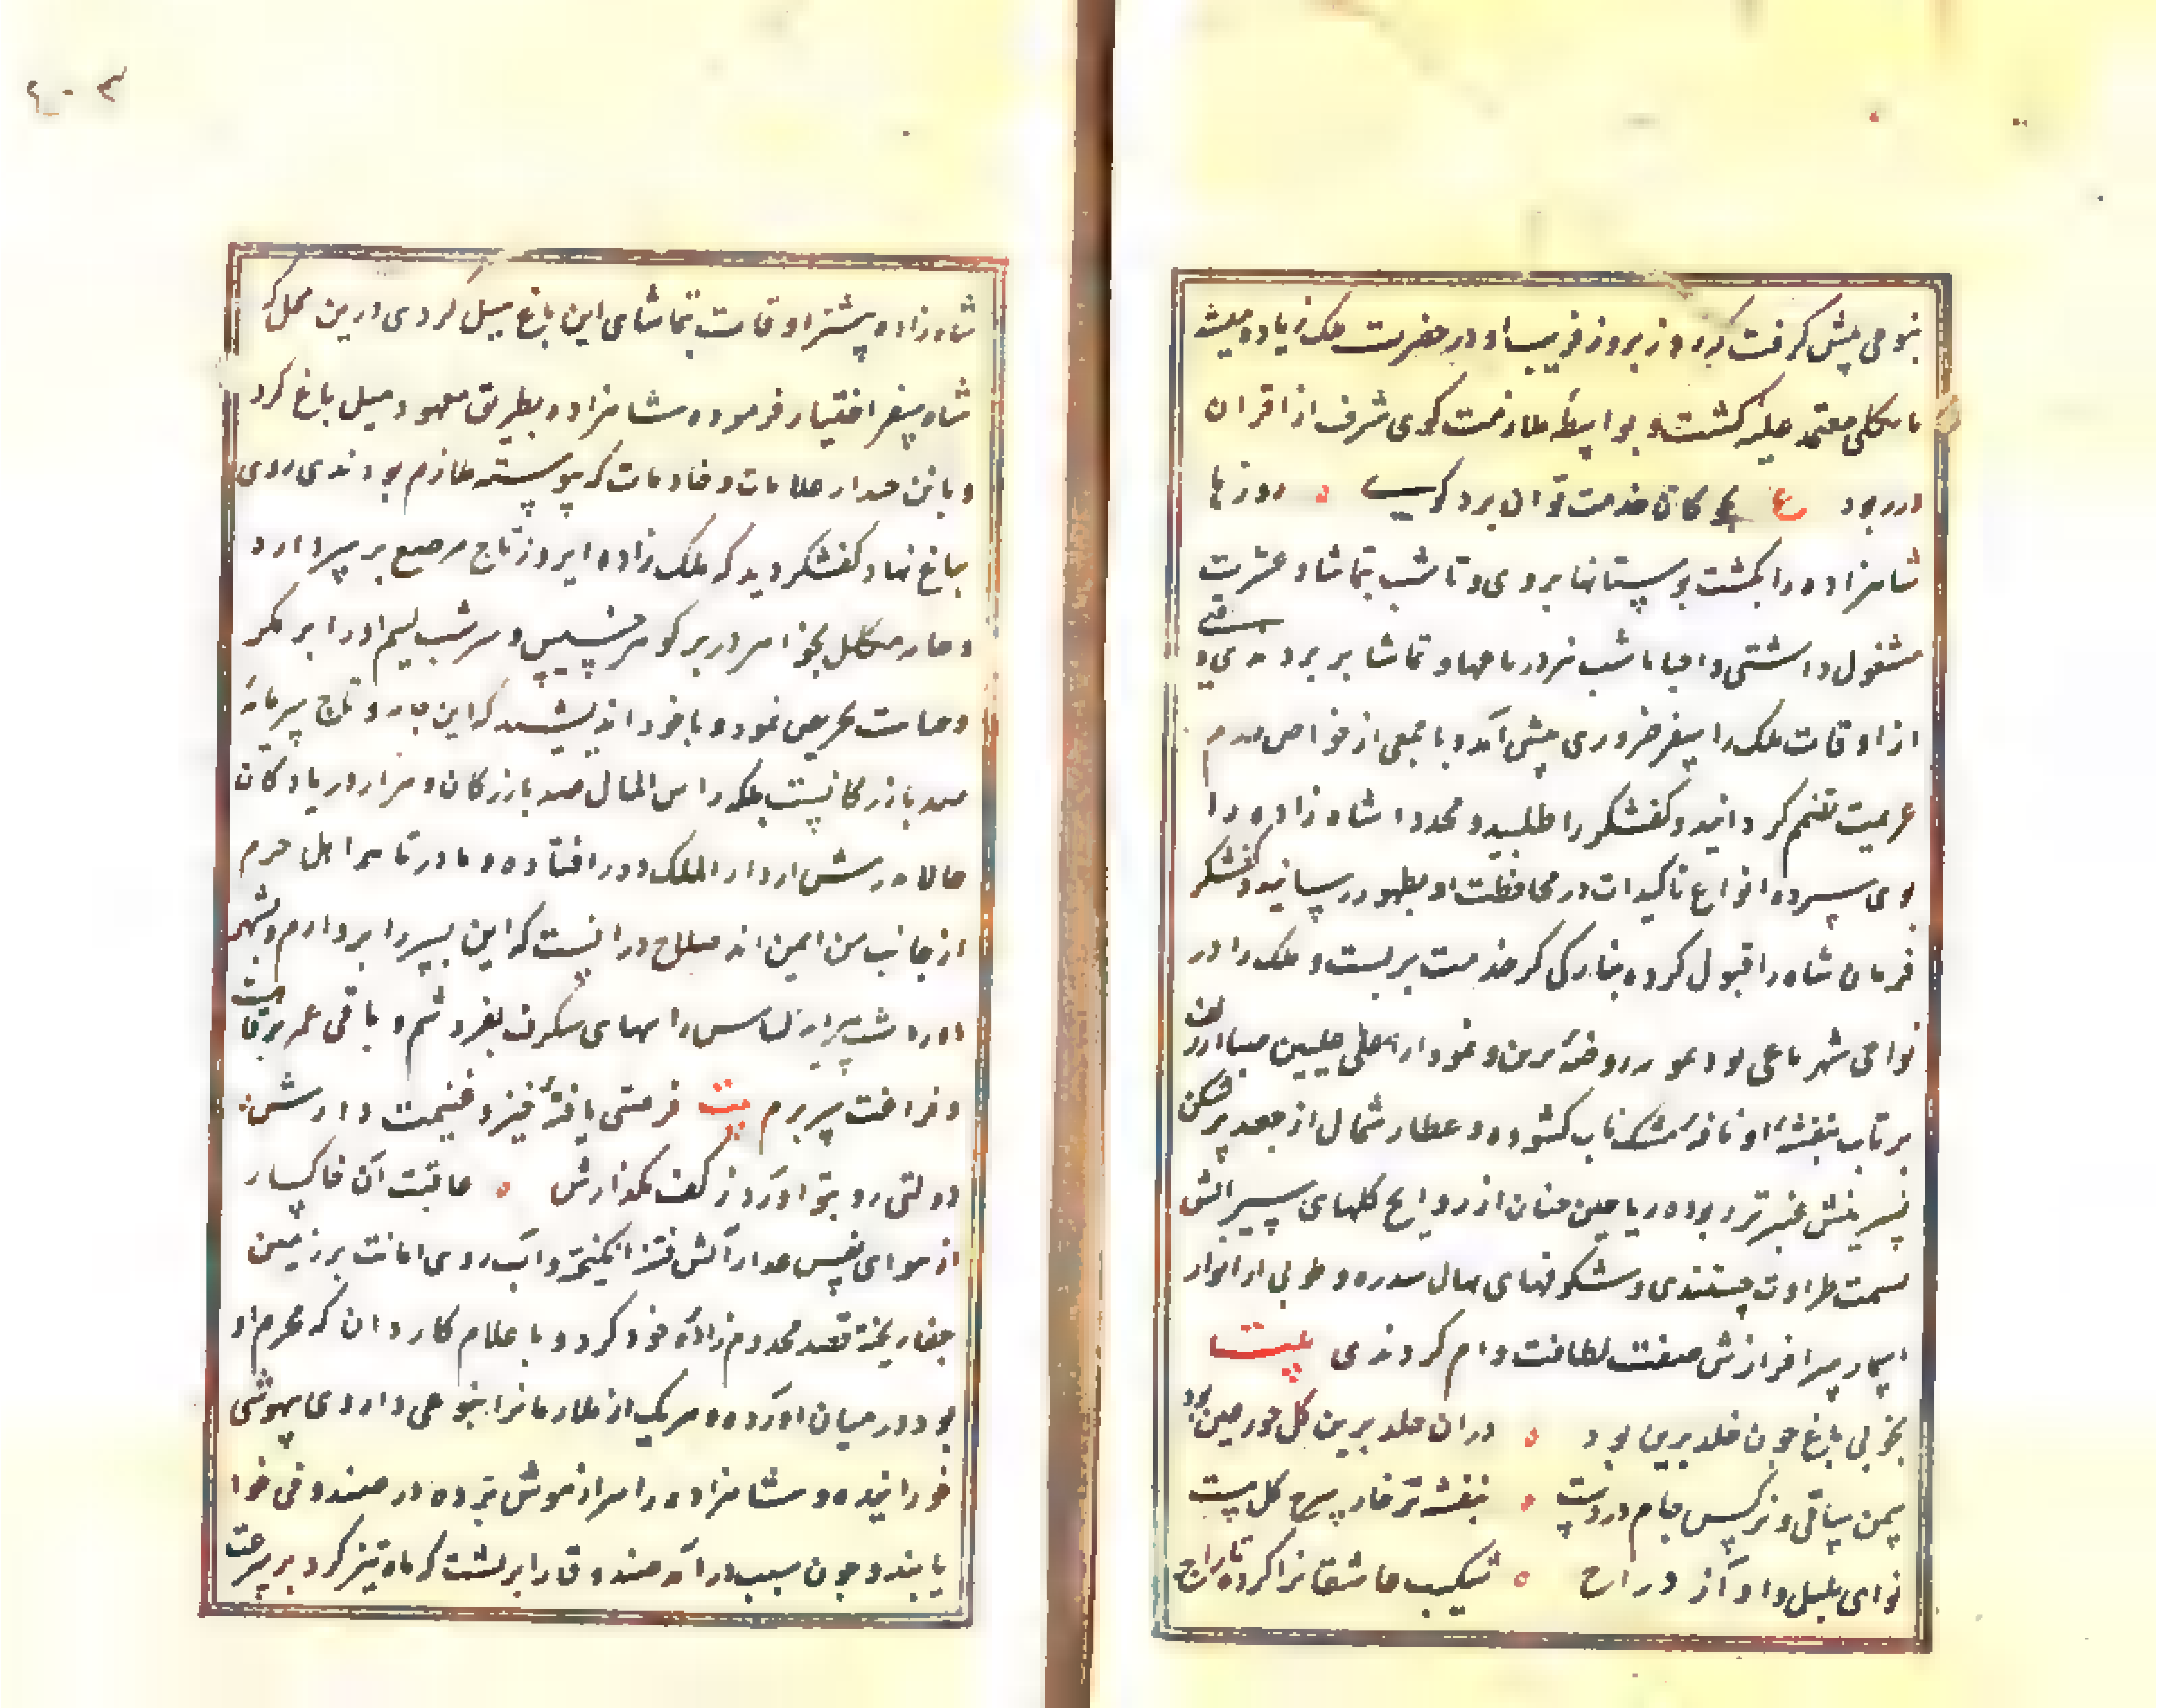 بنوعی پیش کرفت که روز بروز قرب او در حضرت ملک زیاده میشد
تا بکلی معتمد علیه کشت و بواسطه ملازمت کوی شرف از اقران
در ربود ع بچوکان خدمت توان برد کوی روزها
شاهزاده را بکشت بوستانها بردی و تا شب بتماشا و عشرت
مشغول داشتی و احیانا شب نیز در باغها و تماشا بسر بردندی وقتی
از اوقات ملک را سفر ضروری پیش آمد و با جمعی از خواص مردم
عزیمت تصمیم کردانید و کفشکر را طلبید و مجددا شاه زاده را
بوی سپرده انواع تاکیدات در محافظت او بظهور رسانید و کفشکر
فرمان شاه را قبول کرده بتازکی کمر خدمت بربست و ملک را در
نواحی شهر باغی بود چو روضه برین و نمودار اعلی علیین صبا از زلف
پر تاب بنفشه او نافه مشک ناب کشوده و عطار شمال از جعد پر شکن
نسرینش عنبر تر ربوده ریاحین جنان از روایح کلهای سیرابش
سمت طراوت جستندی و شکوفهای نهال سدره و طوبی از انوار
اشجار سرافرازش صفت لطافت وام کردندی بیت
بخوبی باغ چون خلد برین بود دران خلد برین کل حور عین بود
سمن ساقی و نرکس جام در دست بنفشه در خمار و سرخ کل مست
نوای بلبل و آواز دراج شکیب عاشقانرا کرده تاراج
شاه زاده بیشتر اوقات بتماشای این باغ میل کردی درین محل که
شاه سفر اختیار فرموده شاهزاده بطریق معهود میل باغ کرد
و با تنی چند از غلامان و خادمان که پیوسته ملازم بودندی روی
بباغ نهاد کفشکر دید که ملک زاده امروز تاج مرصع بر سر دارد
و جامه مکلل بجواهر در بر کوهر نفیس و سرشب لیم او را بر مکر
و خیانت تحریص نمود و با خود اندیشید که این جامه و تاج سرمایه
صد بازرکانیست بلکه راس المال صد بازرکان و هزار دریا و کان
حالا پدرش از دار الملک دور افتاده و مادر تا سرا اهل حرم
از جانب من ایمن اند صلاح درانست که این پسر را بردارم و بشهر
او را شب پیرایه لباس را ببهای نیکو بفروشم و باقی عمر برفاهیت
و فراغت بسر برم بیت فرصتی یافته خیز و غنیمت دارش
دولتی رو بتو آورد ز کف مکذارش عاقبت آن خاکسار
از هوای نفس غدار آتش فتنه انکیخته و آب روی امانت بر زمین
جفا ریخته قصد مخدوم زاده خود کرد و با غلام کاردان که محرم او
بود در میان آورده و هریک از ملازمانرا بنوعی داروی بیهوشی
خورانیده و شاهزاده را هم از هوش برده در صندوقی خوا
بانید و چون شب درآمد صندوق را بر پشت کره ماه تیز کرد بر سرعت